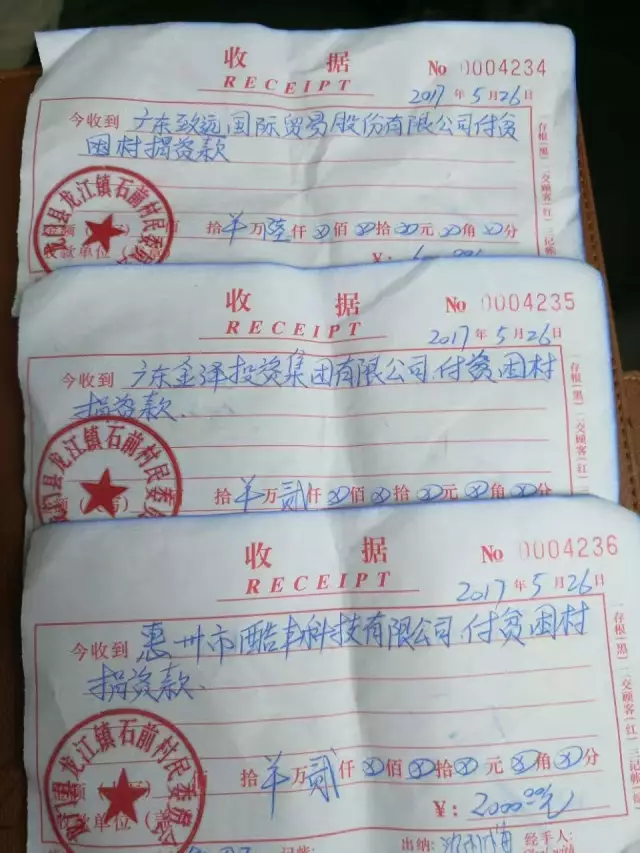 收 据
RECEIPT
No 0004234
2017 年 5 月 26 日
今收到 广东致远国际贸易股份有限公司付贫
困村捐资款
龙江镇石前村民委
拾 万 陆 仟 佰 拾 元 角 分
款单位
¥:
存根(黑) 二交顾客(红) 三记帐
收 据
RECEIPT
No 0004235
2017 年 5 月 26 日
今收到 广东金泽投资集团有限公司付贫困村
捐资款
门县龙江镇石前村民委员
拾 万 贰 仟 佰 拾 元 角 分
一存根(黑) 二交顾客(红)
收 据
RECEIPT
No 0004236
2017 年 5 月 26 日
今收到 惠州市酷丰科技有限公司付贫困村
捐资款
门县龙江镇石前村民委员会
拾 万 贰 仟 佰 拾 元 角 分
款单位
¥: 2000.00元
一存根(黑) 二交顾客(红) 三记帐
出纳: 经手人: